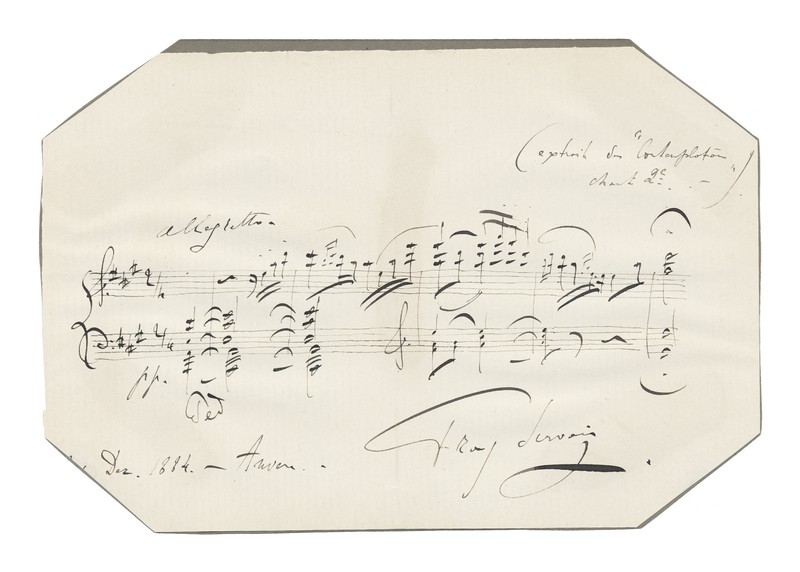 (extrait des "Contemplations"
chant 2e. -)
allegretto
2/4
2/4
pp.
Ped
Dez. 1884. - Anvers.
Franz Servais